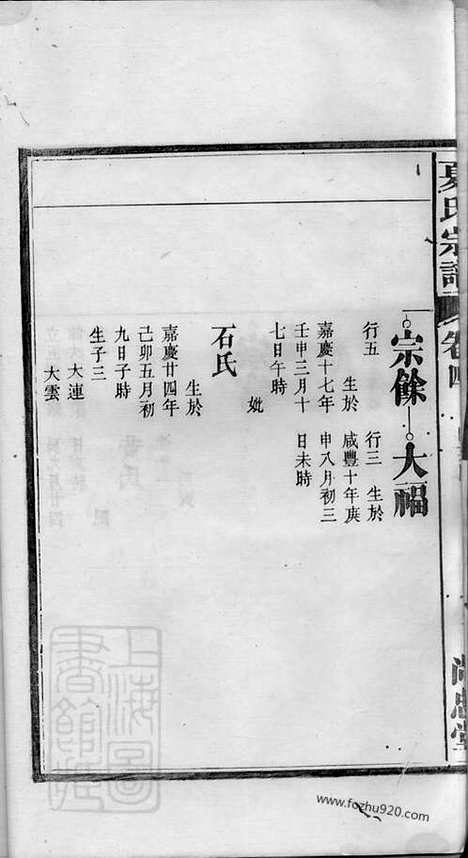 夏氏宗譜
卷四
宗餘
大福
行五　　生於
嘉慶十七年
壬申三月十
七日午時
行三　生於
咸豐十年庚
申八月初三
日未時
妣
石氏
生於
嘉慶廿四年
己卯五月初
九日子時
生子三
大連
大雲
上海圖
書館藏
www.fozhu920.com